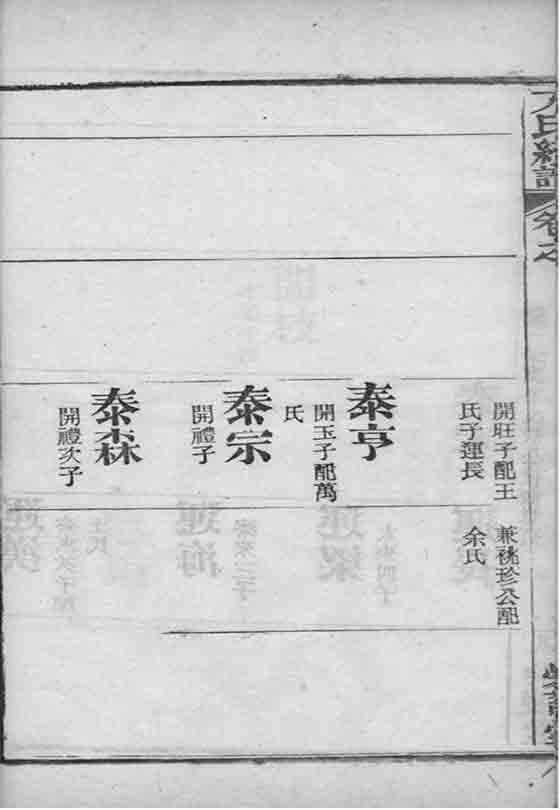 氏統譜
卷之
開旺子配王
氏子運長
兼祧珍公配
余氏
泰亨
開玉子配萬
氏
泰宗
開禮子
泰森
開禮次子